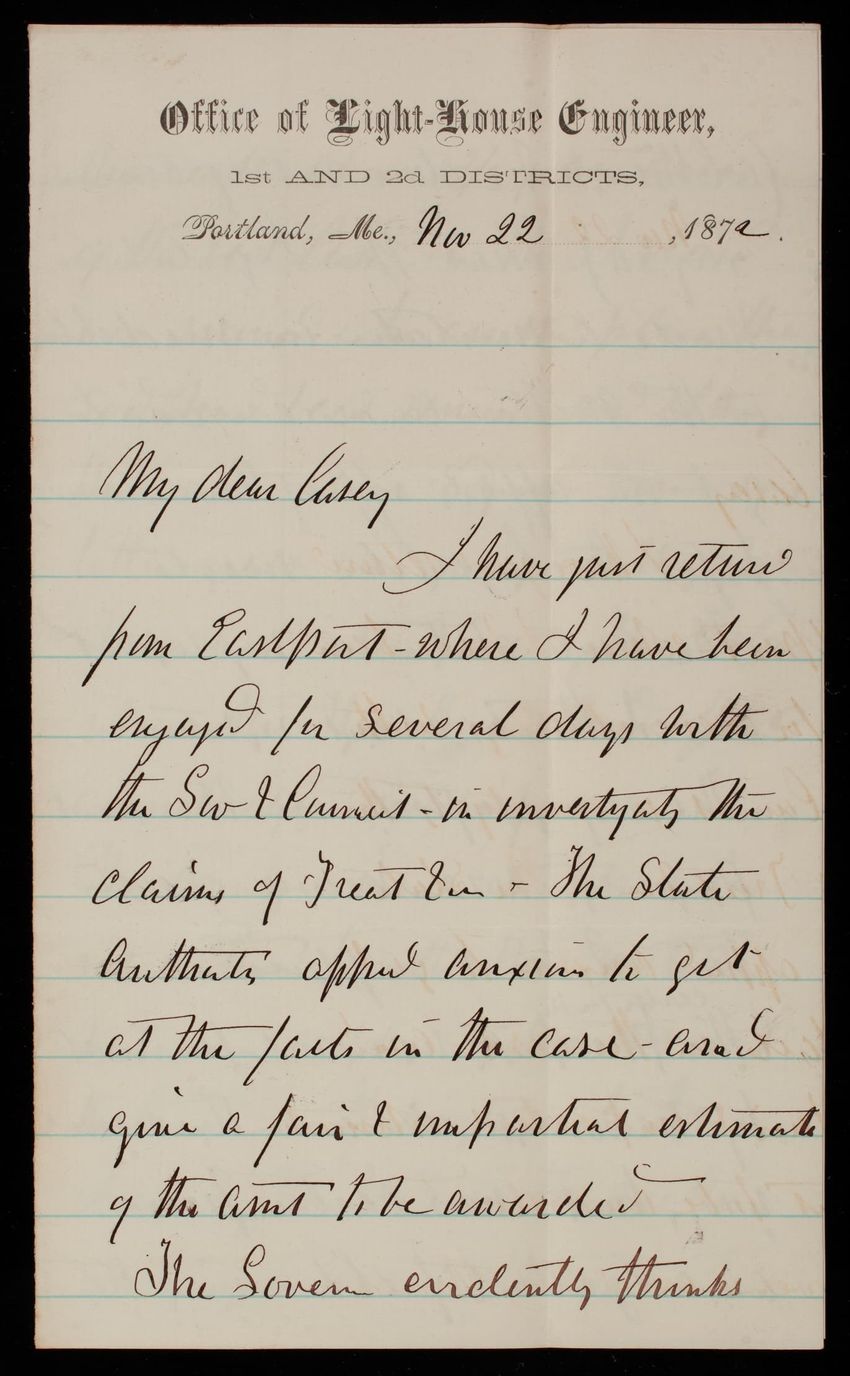 Office of Light-House Engineer,
1st AND 2d DISTRICTS,
Portland, Me., Nov 22, 1872.
My dear Casey
I have just returnd
from Eastport - where I have been
engaged for several days with
the Gov & Council - in investigatg the
claims of Treat & - The State
Authorts appeard anxious to get
at the facts in the case - and
give a fair & impartial estimate
of the amt to be awarded
The Govern evidently thinks